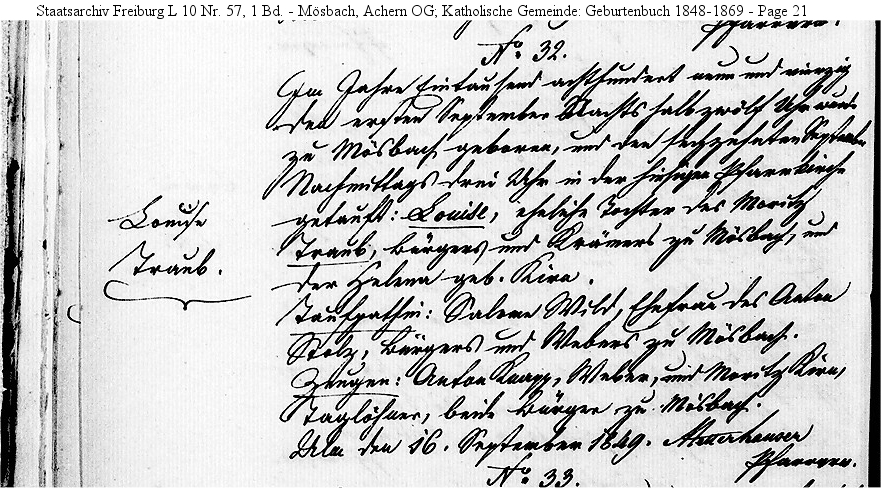 Staatsarchiv Freiburg L 10 Nr. 57, 1 Bd. - Mösbach, Achern OG; Katholische Gemeinde: Geburtenbuch 1848-1869 - Page 21
Pfarrer.
No. 32.
Im Jahre Eintausend achthundert neun und vierzig
den ersten September Nachts halb zwölf Uhr wurde
zu Mösbach geboren, und den sechzehnten September
Nachmittags drei Uhr in der hiesigen Pfarrkirche
getauft: Louise, eheliche Tochter des Moritz
Traub, Bürgers und Krämers zu Mösbach, und
der Helena geb. Kirn.
Taufpathin: Salome Wild, Ehefrau des Anton
Stolz, Bürgers und Webers zu Mösbach.
Zeugen: Anton Knapp, Weber, und Moritz Kirn,
Taglöhner, beide Bürger zu Mösbach.
Ulm den 16. September 1849.
Pfarrverw.
Louise
Traub.
No. 33.